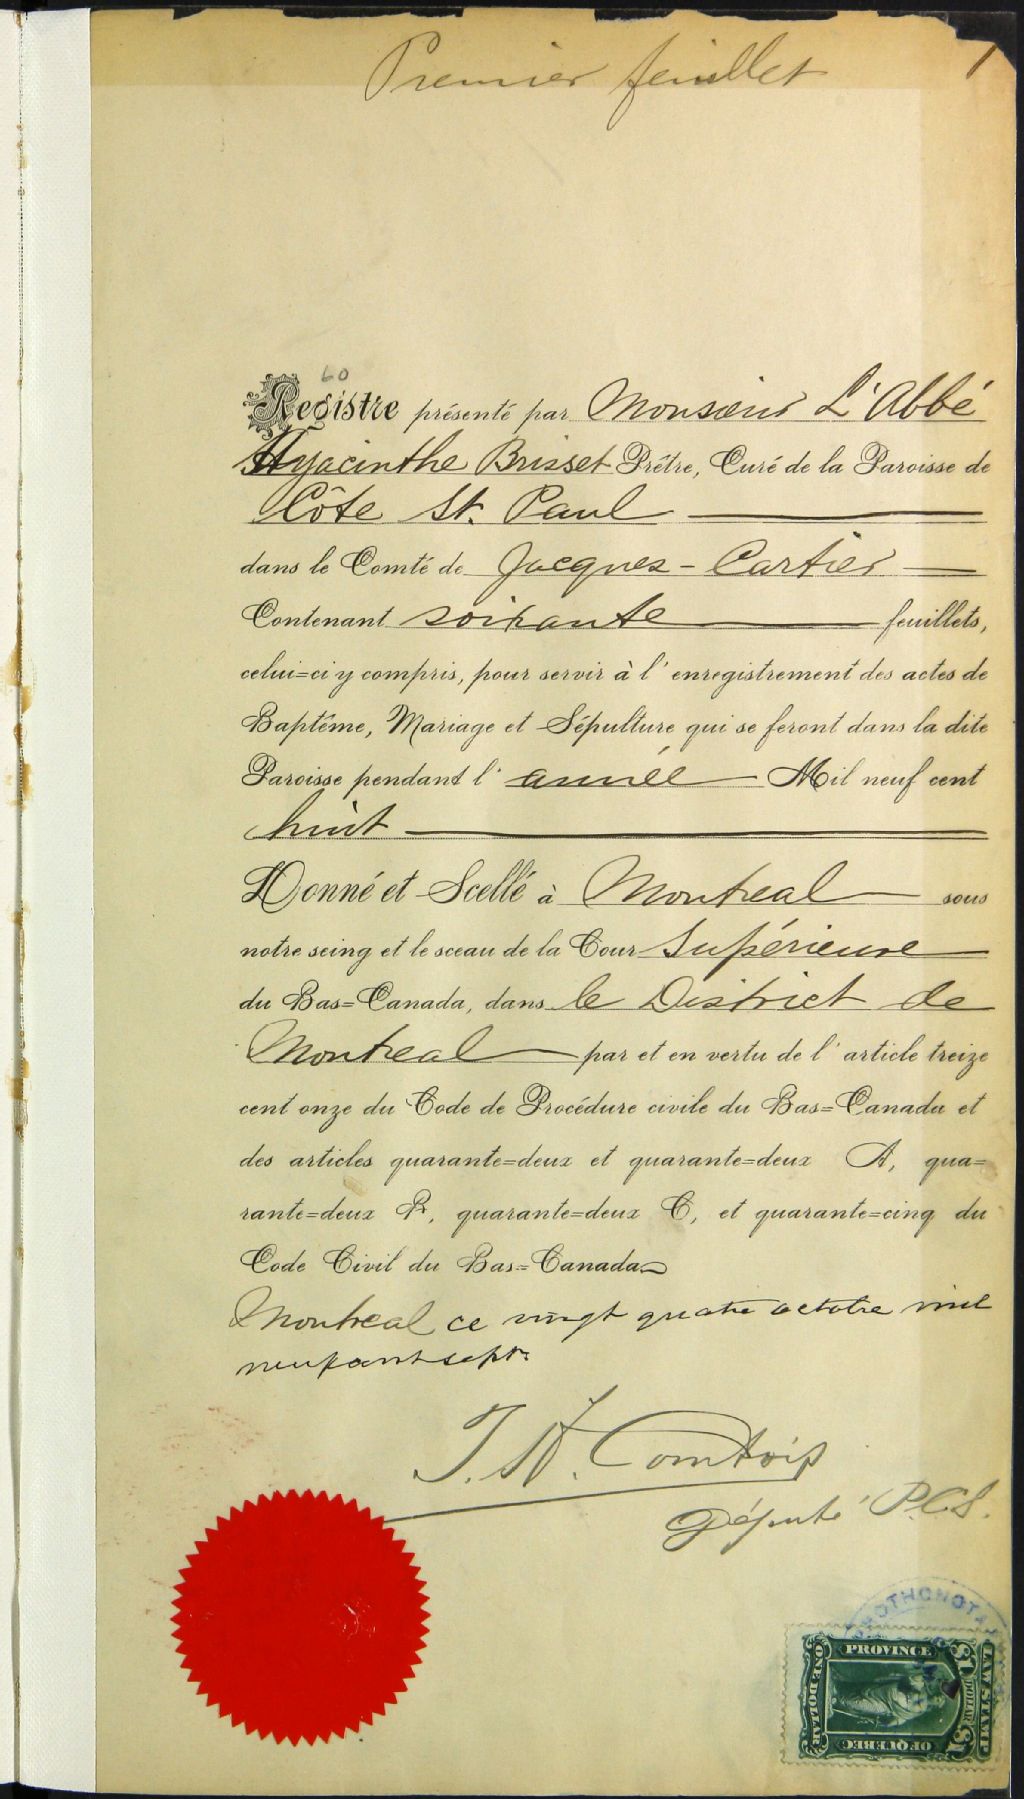 Premier feuillet
1
60
Registre présenté par Monsieur L'Abbé
Hyacinthe Brisset Prêtre, Curé de la Paroisse de
Côte St. Paul
dans le Comté de Jacques-Cartier
Contenant soixante feuillets,
celui=ci y compris, pour servir à l'enregistrement des actes de
Baptême, Mariage et Sépulture qui se feront dans la dite
Paroisse pendant l'année Mil neuf cent
huit
Donné et Scellé à Montreal sous
notre seing et le sceau de la Cour Supérieure
du Bas=Canada, dans le District de
Montreal par et en vertu de l'article treize
cent onze du Code de Procédure civile du Bas=Canada et
des articles quarante=deux et quarante=deux A, qua=
rante=deux B, quarante=deux C, et quarante=cinq du
Code Civil du Bas=Canada
Montreal ce vingt quatre octobre mil
neuf cent sept.
J. H. Comtois
Député P.C.S.
PROVINCE
OF QUEBEC
LAW STAMP
ONE DOLLAR
$1 DOLLAR $1